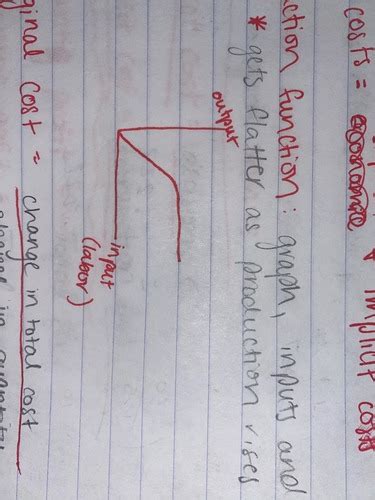 costs = implicit cost
ction function: graph, inputs and
* gets flatter as production rises
output
input
(labor)
ginal cost = change in total cost
in quantity